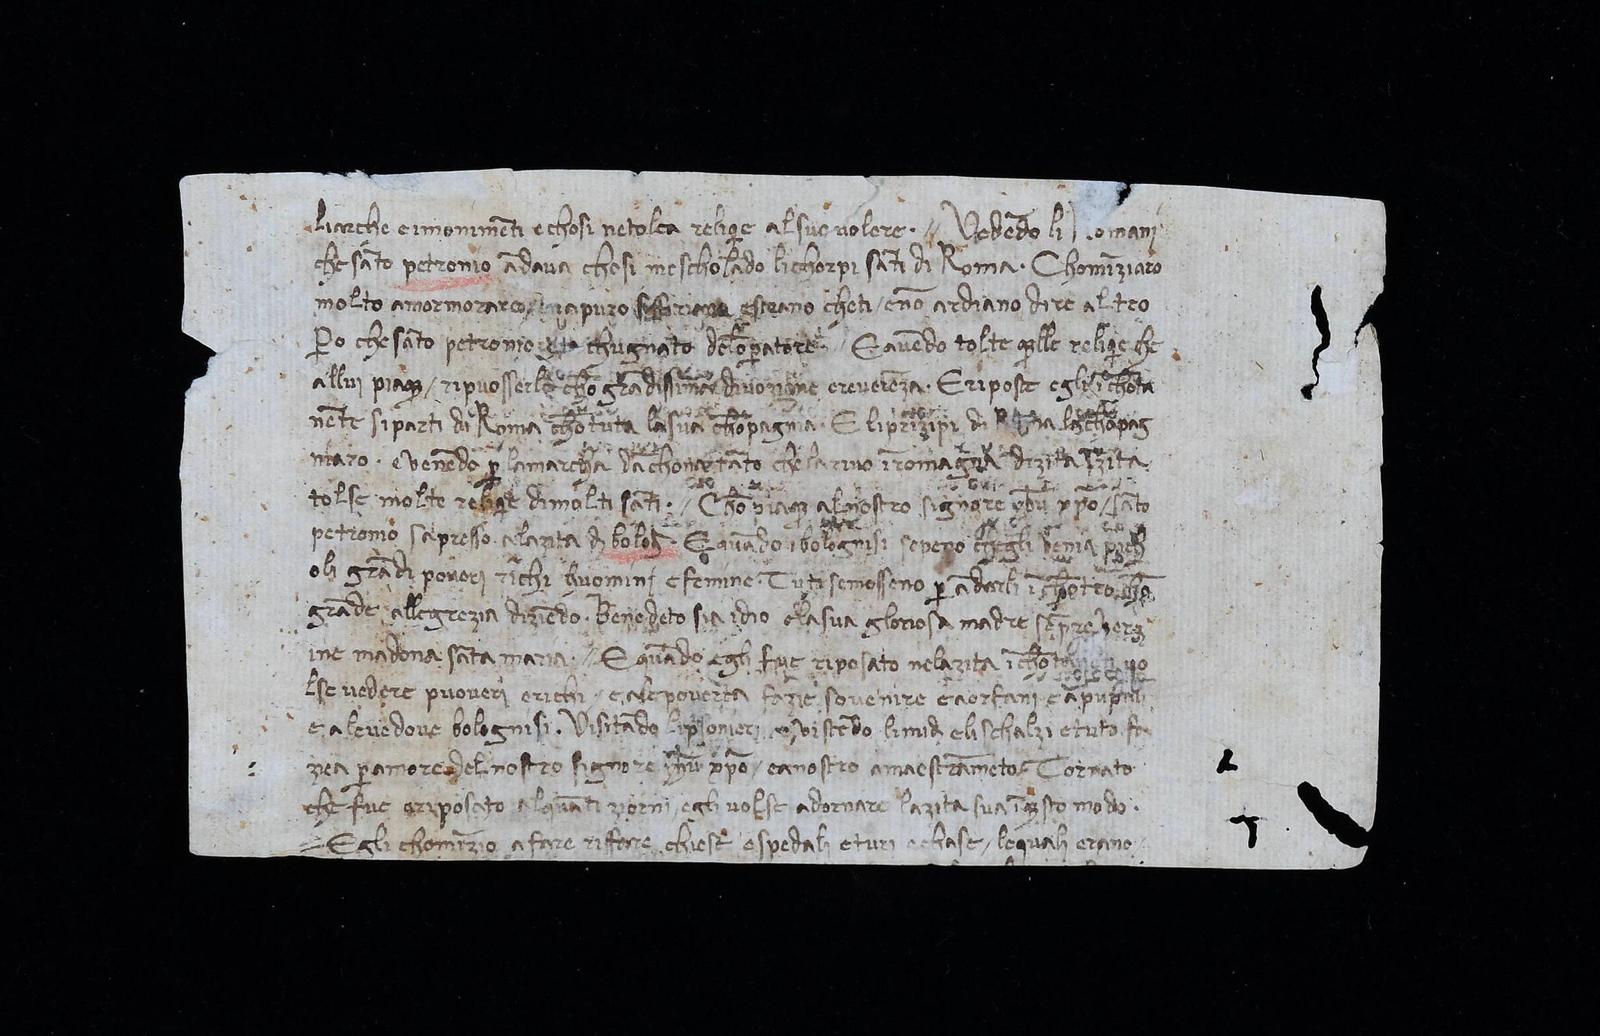 li arche e imonimẽti e chosi ne tolea reliq̃e al suo volere · // Vedẽdo li omani
che sãto petronio ãdava chosi meschołãdo li chorpi sãti di Roma · Chomĩziaro
molto a mormorareo ma puro estavano cheti / e nõ ardiano dire altro
Po che sãto petronio chugnato delõperatore // E avẽdo tolte q̃lle reliq̃e che
a llui piaq / ripuosserle chõ grãdissima divozione e reverẽza · E riposte egli ĩchõta
nẽte si parti di Roma chõ tuta la sua chõpagnia · E li prĩzipi di Roma la chõpag
niaro · e venẽdo p la marcha dachona tãto che larivo ĩ romagna di zita ĩ zita
tolse molte reliq̃e di molti sãti · // Chõ piaq al nostro signore yh̃u xp̃o / sãto
petronio sapresso a la zita di bolog̃ · E quãdo i bolognisi sepeno chegli venia pich
oli grãdi poveri richi huomini e femine Tuti se mosseno p ãdarli ĩ chõtro chõ
grãde allegrezia dizẽdo · Benedeto sia idio e la sua gloriosa madre sẽpre verg
ine madona sãta maria · // E quãdo egli fue riposato ne la zita ĩchõtanẽti vo
lse vedere puoveri e richi / e ale poverta fazie sovenire e a orfani e a pupilli
e a le vedove bolognisi · Visitãdo li pisonieri e vistẽdo li nudi e li schalzi e tuto fa
zea p amore del nostro signore yh̃u xp̃o / e a nostro amaestramẽto · Tornato
che fue e riposato alquãti zorni egli volse adornare la zita sua ĩ q̃sto modo ·
// Egli chomĩzio a fare riffare chiese e spedali e turi e chase / le quali erano